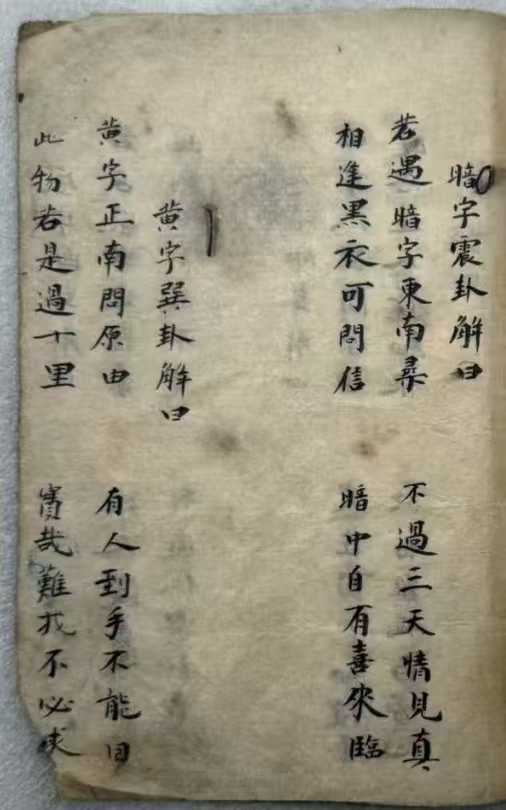 暗字震卦解曰
若遇暗字東南尋 不過三天情見真
相逢黑衣可問信 暗中自有喜來臨
黄字巽卦解曰
黄字正南問原由 有人到手不能回
此物若是過十里 實哉難找不必求